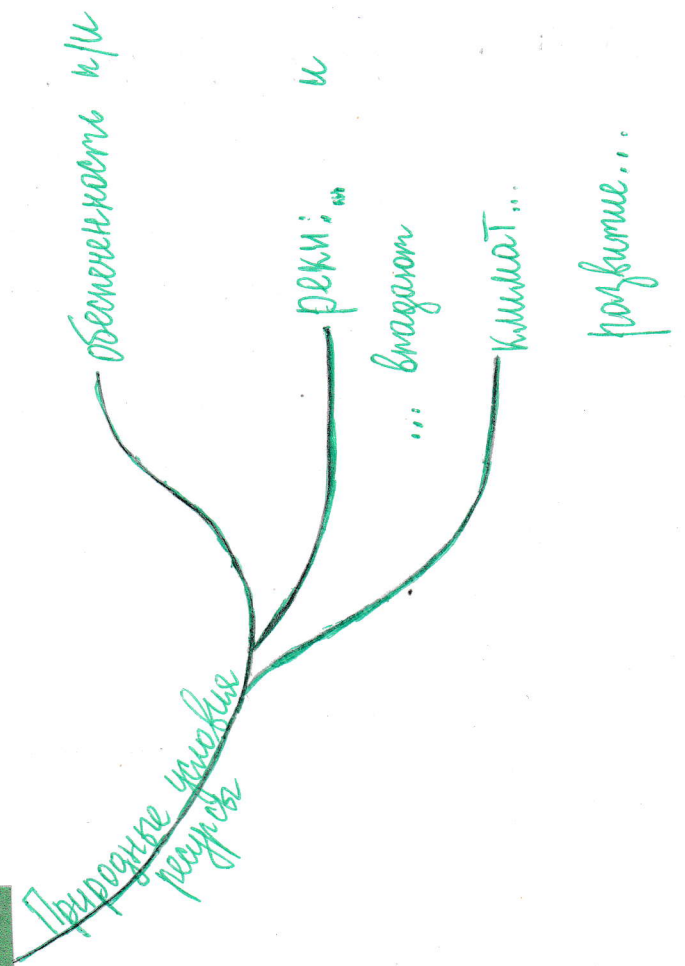 Природные условия
ресурсы
обеспеченность п/и
реки;... и
... впадают
климат...
развитие...